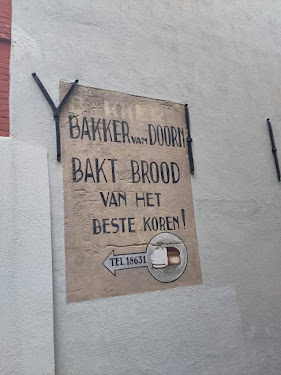 BAKKER VAN DOORN
BAKT BROOD
VAN HET
BESTE KOREN!
TEL 18631